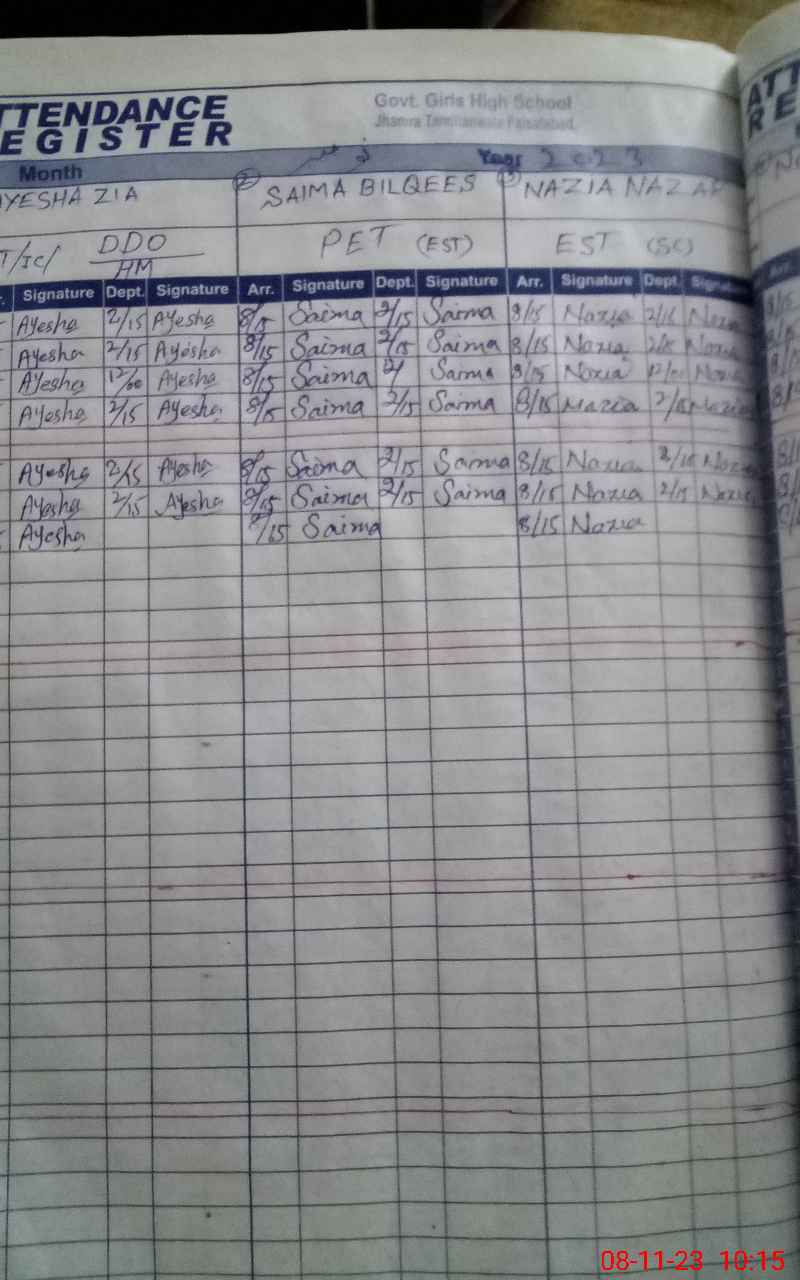 ATTENDANCE
REGISTER
Govt. Girls High School
Month
Year 2023
AYESHA ZIA
② SAIMA BILQEES
③ NAZIA NAZAR
T/IC/ DDO
HM
PET (EST)
EST (SC)
Signature Dept. Signature Arr. Signature Dept. Signature Arr. Signature Dept. Signature
Ayesha 2/15 Ayesha 8/15 Saima 2/15 Saima 8/15 Nazia 2/15 Nazia
Ayesha 2/15 Ayesha 8/15 Saima 2/15 Saima 8/15 Nazia 2/15 Nazia
Ayesha 12/00 Ayesha 8/15 Saima 12/ Saima 8/15 Nazia 12/00 Nazia
Ayesha 2/15 Ayesha 8/15 Saima 2/15 Saima 8/15 Nazia 2/15 Nazia
Ayesha 2/15 Ayesha 8/15 Saima 2/15 Saima 8/15 Nazia 2/15 Nazia
Ayesha 2/15 Ayesha 8/15 Saima 2/15 Saima 8/15 Nazia 2/15 Nazia
Ayesha 8/15 Saima 8/15 Nazia
08-11-23 10:15